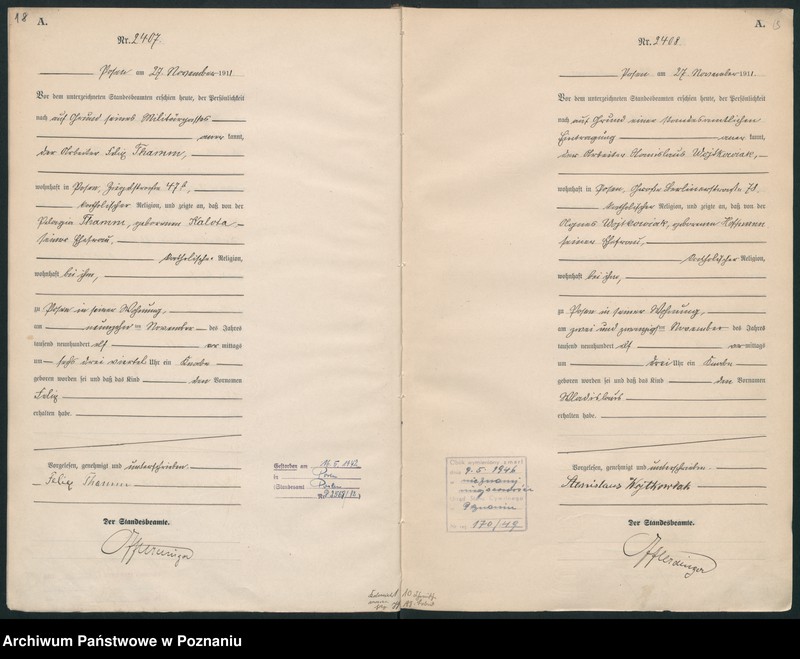 18
A.
Nr. 2407.
Posen am 27. November 1911.
Vor dem unterzeichneten Standesbeamten erschien heute, der Persönlichkeit
nach auf Grund seines Militärpasses
kannt,
der Arbeiter Felix Thamm,
wohnhaft in Posen,
katholischer Religion, und zeigte an, daß von der
Pelagia Thamm, geborenen Kalota
seiner Ehefrau,
katholischer Religion,
wohnhaft bei ihm,
zu Posen in seiner Wohnung,
am neunzehnten November des Jahres
tausend neunhundert elf vormittags
um sechs drei viertel Uhr ein Knabe
geboren worden sei und daß das Kind den Vornamen
Felix
erhalten habe.
Vorgelesen, genehmigt und unterschrieben
Felix Thamm
Der Standesbeamte.
Gestorben am 16.5.1942
in Posen
(Standesamt Posen
Nr.
A.
Nr. 2408.
Posen am 27. November 1911.
Vor dem unterzeichneten Standesbeamten erschien heute, der Persönlichkeit
nach auf Grund einer standesamtlichen
Eintragung kannt,
der Arbeiter Stanislaus Wojtkowiak,
wohnhaft in Posen, Große Berlinerstraße
katholischer Religion, und zeigte an, daß von der
Agnes Wojtkowiak, geborenen Hoffmann
seiner Ehefrau,
katholischer Religion,
wohnhaft bei ihm,
zu Posen in seiner Wohnung,
am zwei und zwanzigsten November des Jahres
tausend neunhundert elf vormittags
um drei Uhr ein Knabe
geboren worden sei und daß das Kind den Vornamen
Wladislaus
erhalten habe.
Vorgelesen, genehmigt und unterschrieben
Stanislaus Wojtkowiak
Der Standesbeamte.
9.5.1946
nieznany
Poznaniu
170/49
Archiwum Państwowe w Poznaniu